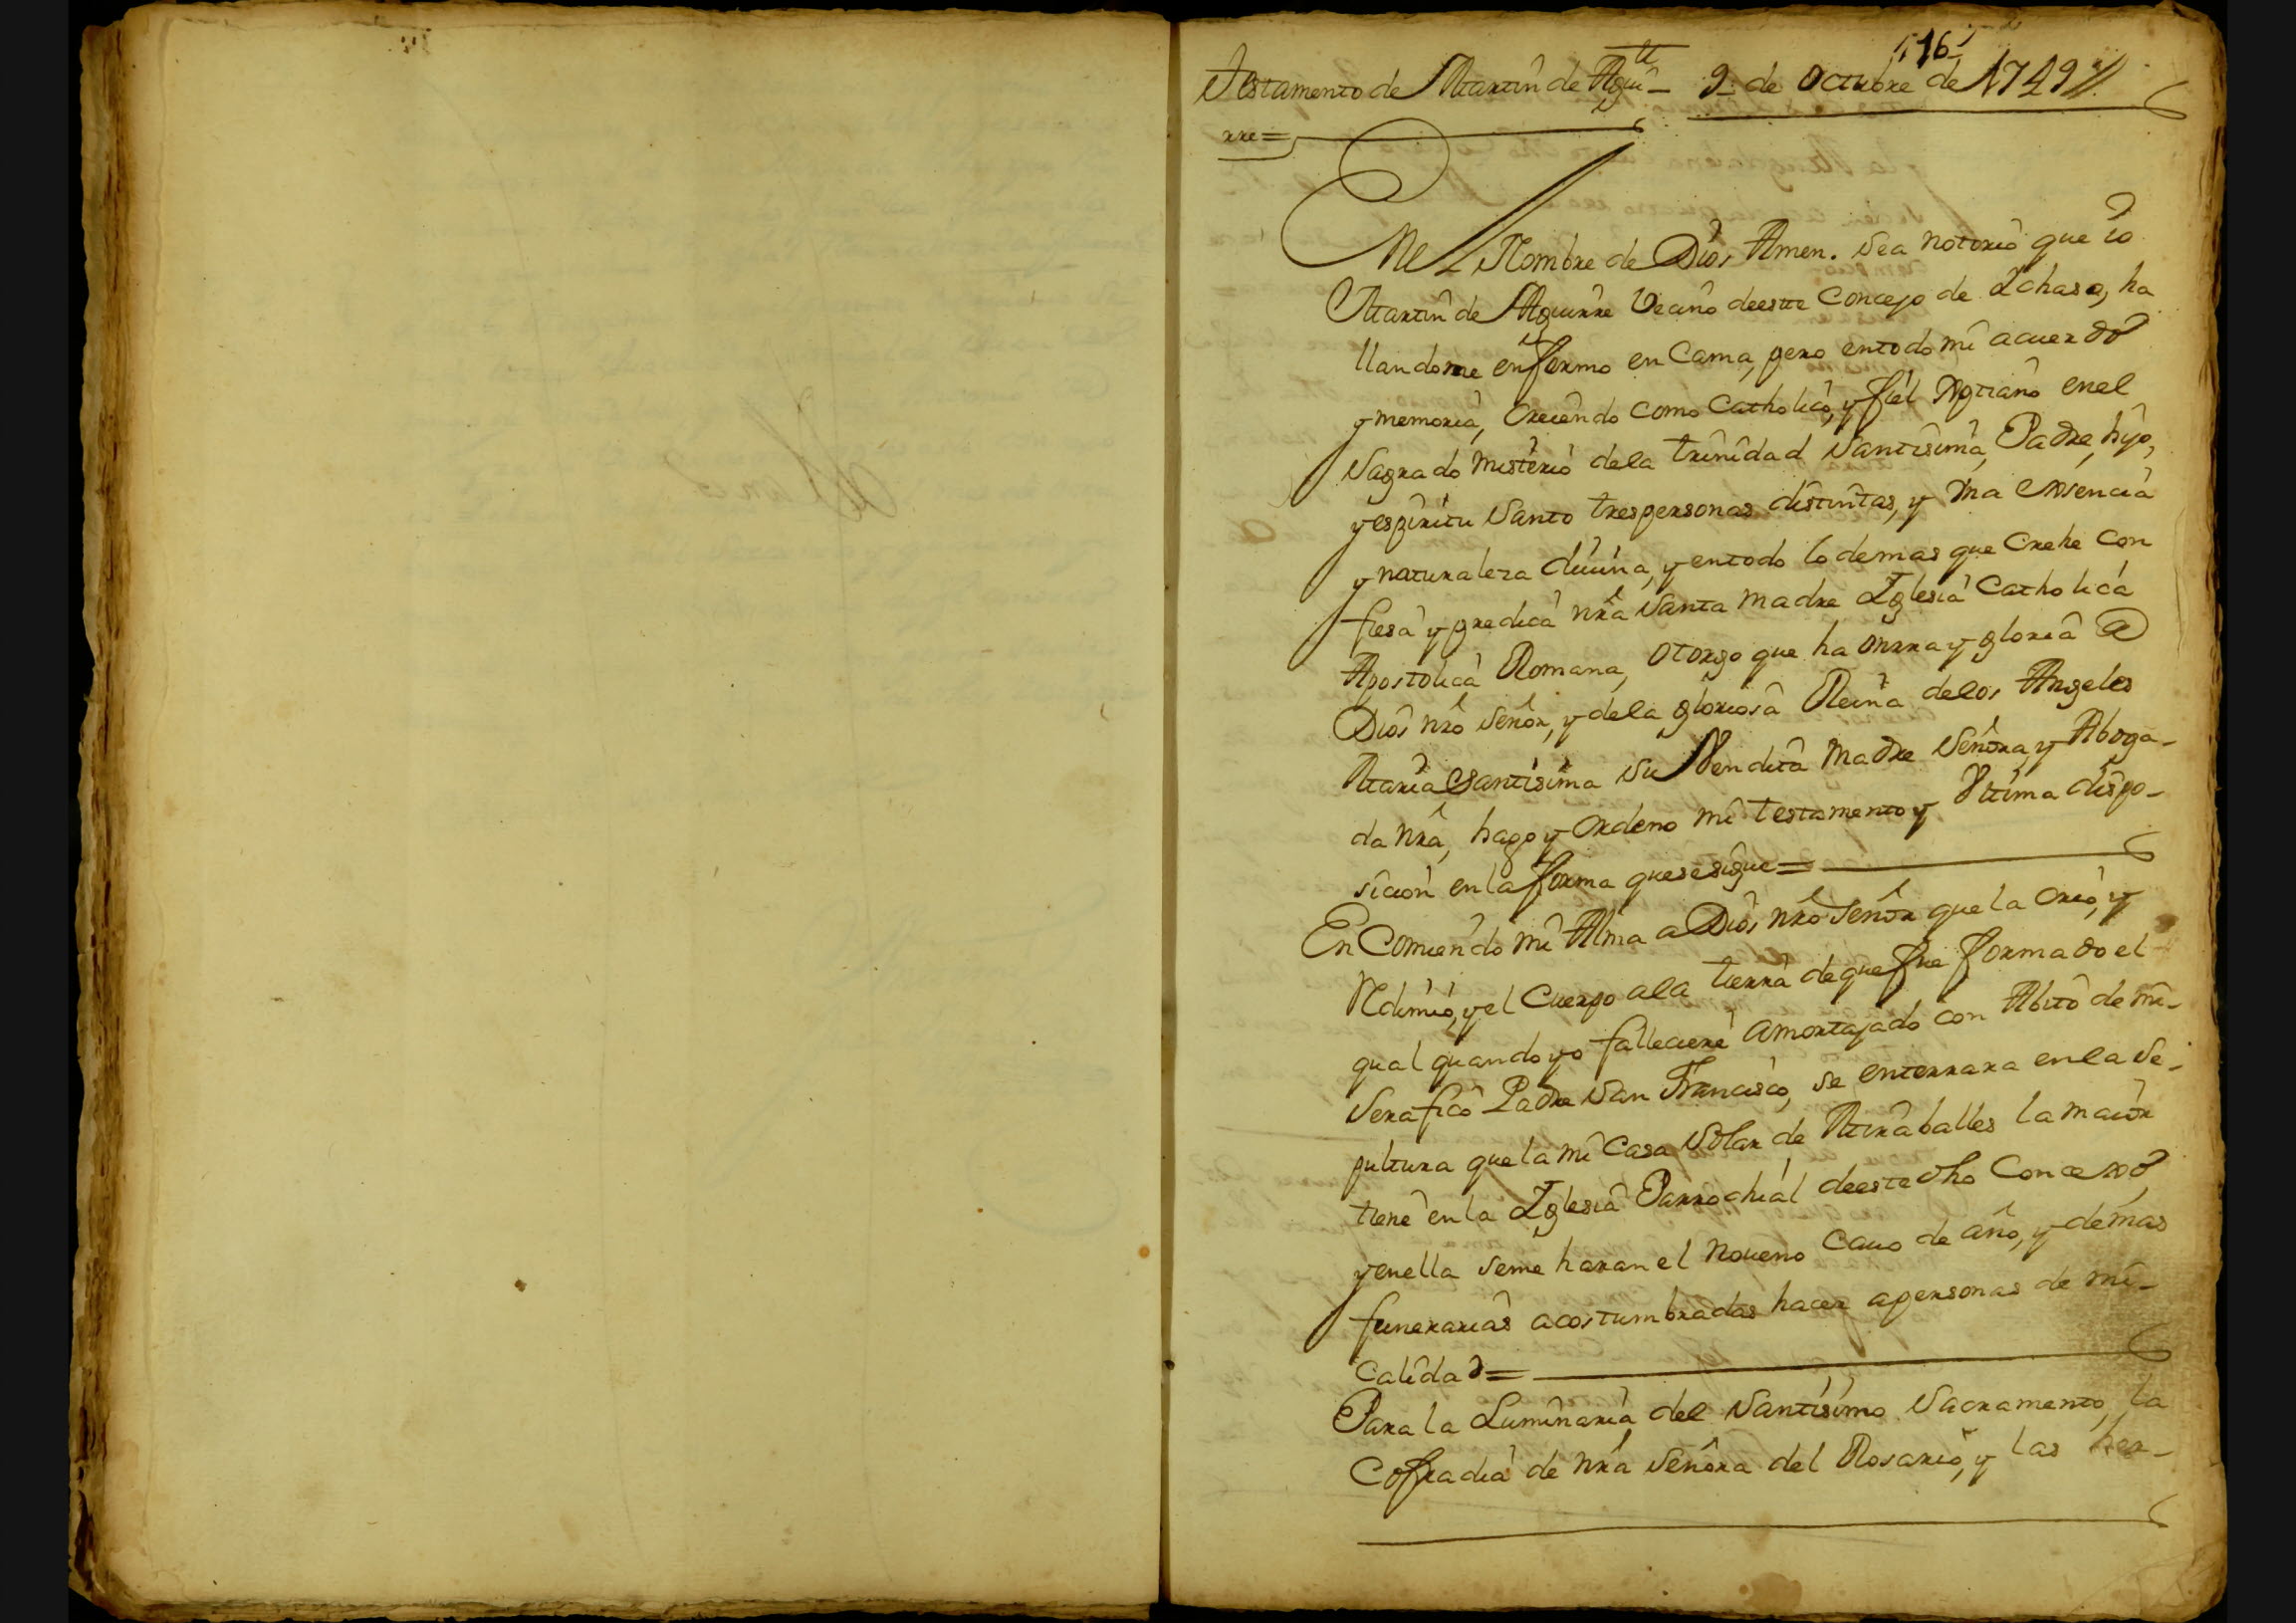 116
Testamento de Martin de Agui- 9 de Octubre de 1749//
rre=
En el Nombre de Dios Amen. Sea notorio que io
Martin de Aguirre Vecino deeste Concejo de Ichaso, ha
llandome enfermo en Cama, pero entodo mi acuerdo
y memoria, Creiendo como Catholico, y fiel Xptiano enel
Sagrado Misterio dela trinidad Santisima, Padre, hijo,
y espiritu Santo trespersonas distintas, y Vna Essencia
y naturaleza diuina, y entodo lo demas que Crehe Con
fiesa y predica nrâ Santa Madre Iglesia Catholica
Apostolica Romana, Otorgo que ha onrra y gloria a
Dios nrô Señor, y dela gloriosa Reina delos Angeles
Maria Santisima su Vendita Madre Señora, y Aboga-
da nrâ, hago y Ordeno mi testamento y Vltima dispo-
sicion en la forma quesesigue=
En Comiendo mi Alma a Dios nrô Señor que la Crió, y
Rdimió, y el Cuerpo ala tierra deque fue formado el
qual quando yo falleciere amortajado con Abito de mi-
Serafico Padre San Francisco, se enterrara en la Se-
pultura que la mi Casa Solar de Miraballes la maior
tiene en la Iglesia Parrochial deeste dho Concexo,
y enella seme haran el Noueno Cauo de año, y demas
funerarias acostumbradas hacer apersonas de mi-
Calidad=
Para la Luminaria del Santisimo Sacramento, la
Cofradia de nrâ Señora del Rosario, y las her-